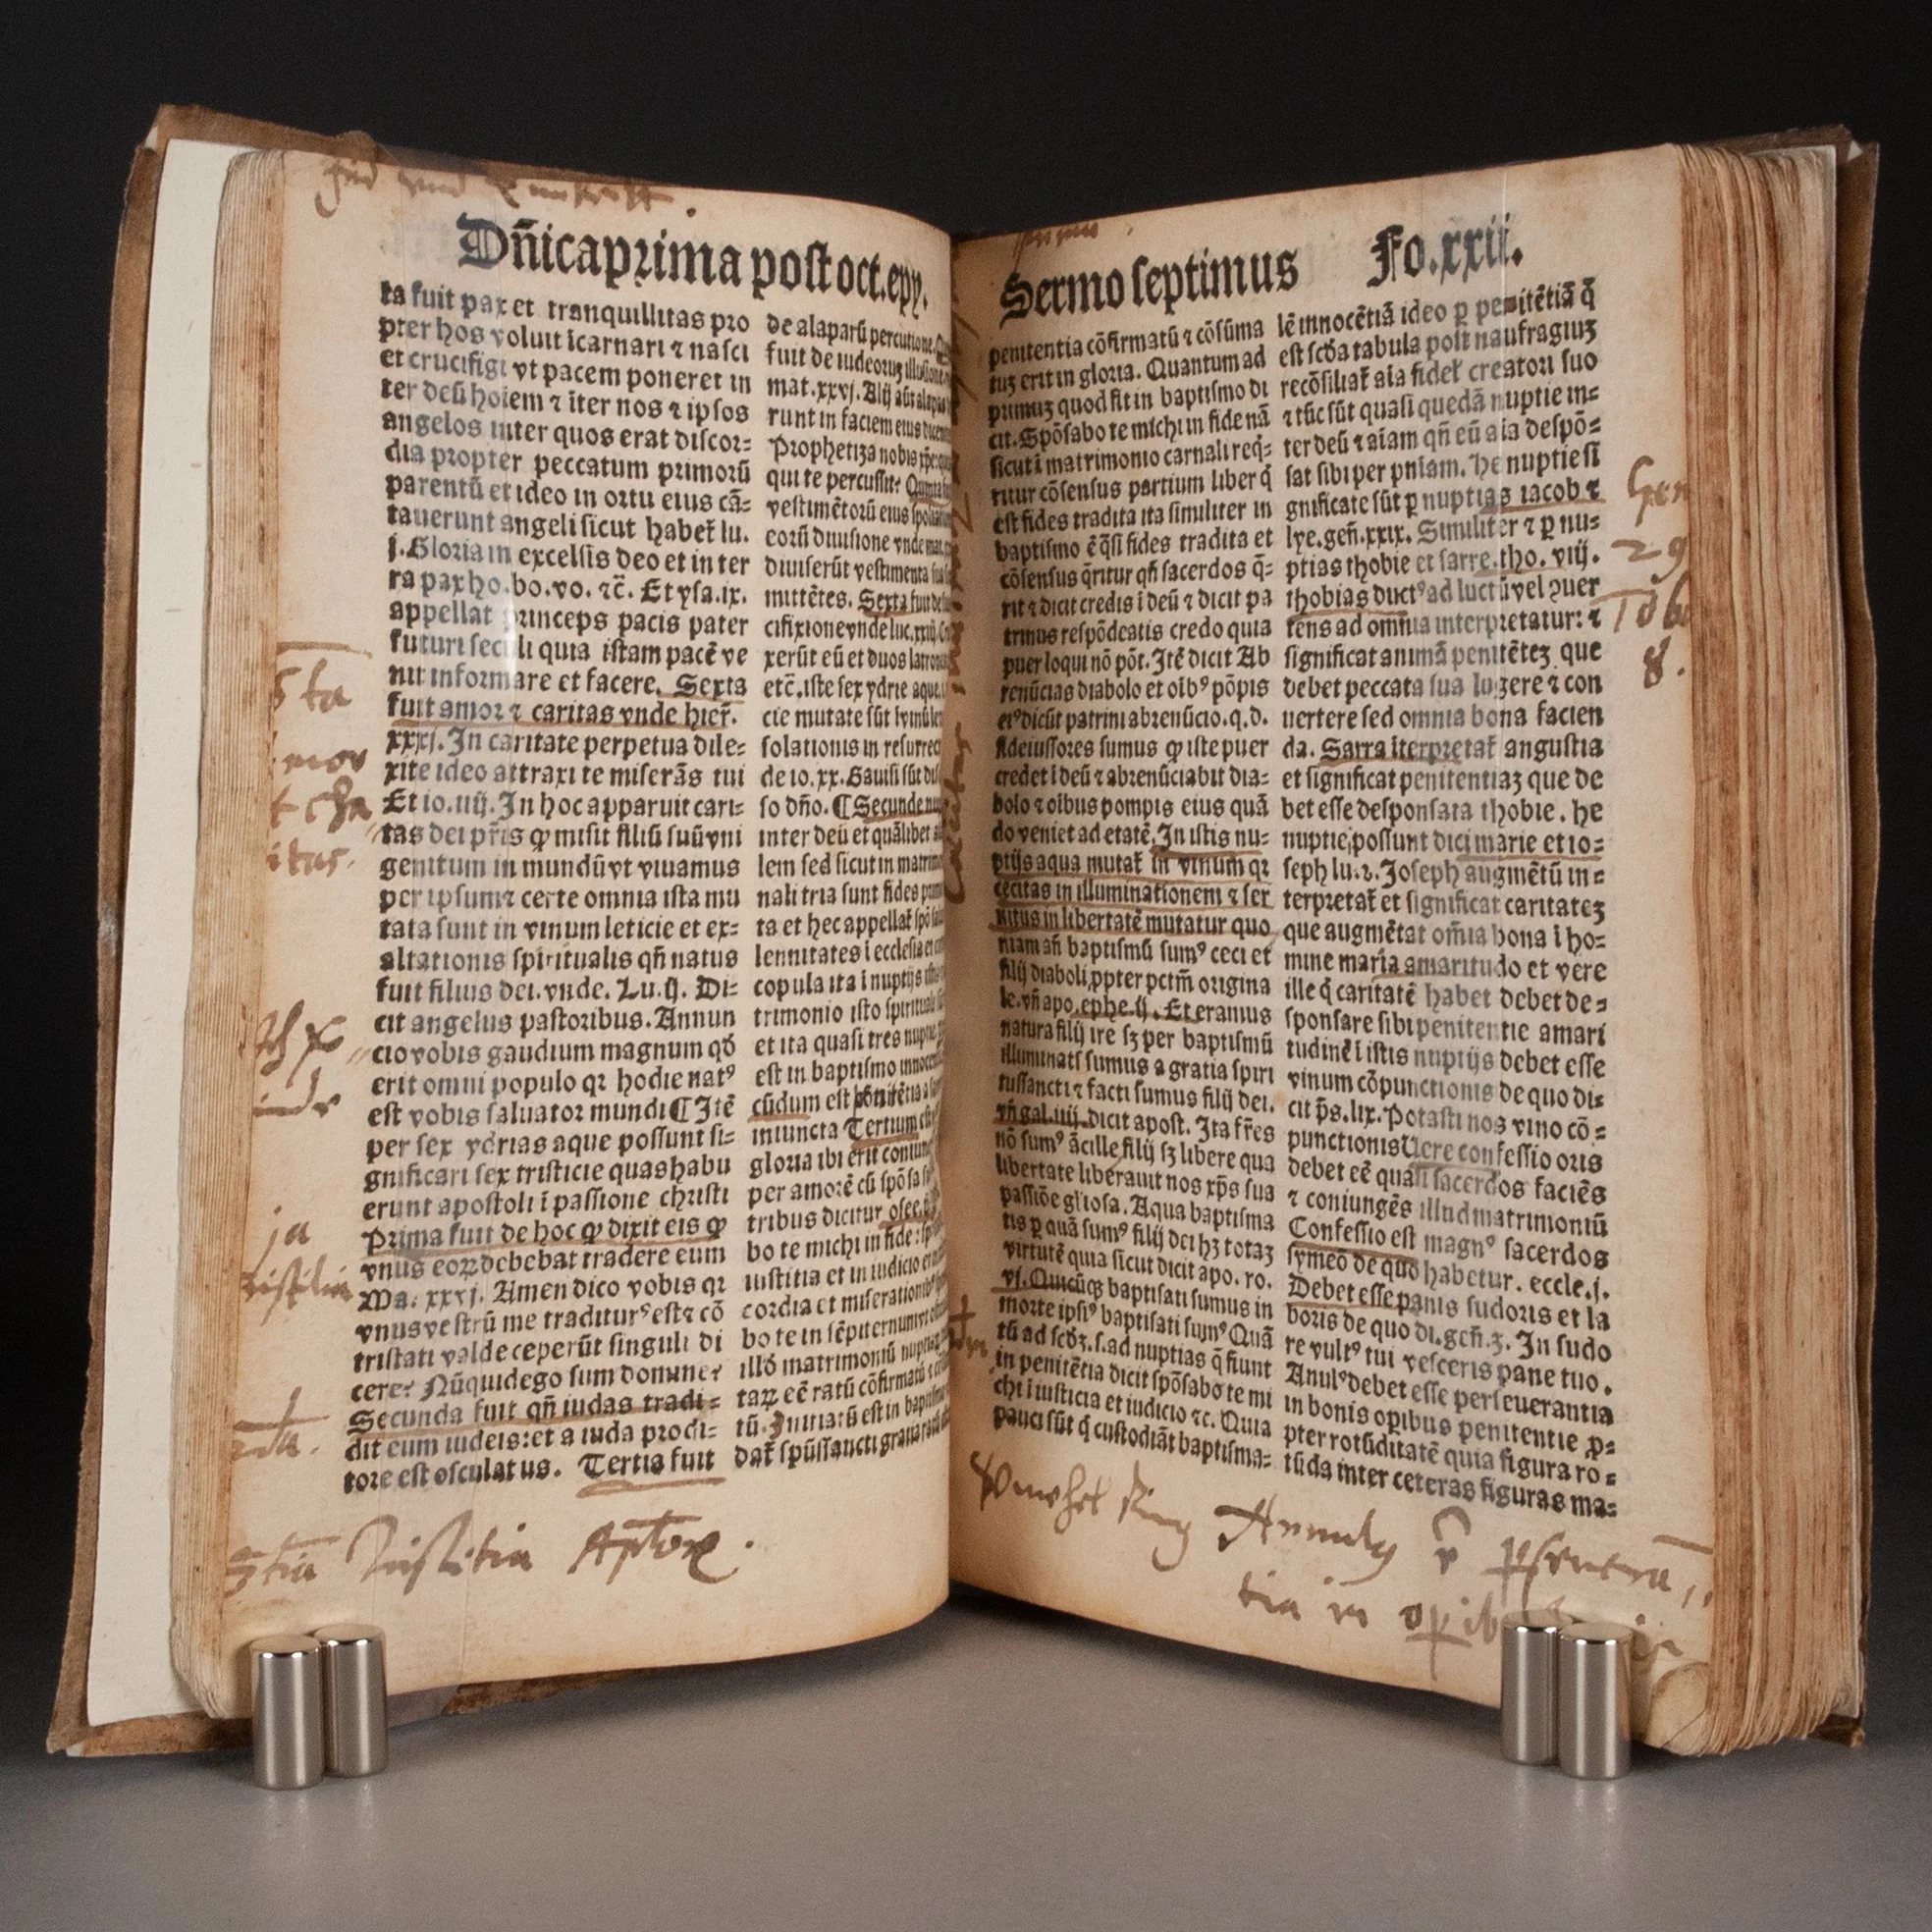 Dñica prima post oct. epy.
ta fuit pax et tranquillitas pro
pter hos voluit icarnari ⁊ nasci
et crucifigi vt pacem poneret in
ter deū hoiem ⁊ iter nos ⁊ ipsos
angelos inter quos erat discor=
dia propter peccatum primorū
parentū et ideo in ortu eius cā=
tauerunt angeli sicut habet̄ lu.
j. Gloria in excelsis deo et in ter
ra pax ho. bo. vo. ⁊c̄. Et ysa. ix.
appellat princeps pacis pater
futuri seculi quia istam pacē ve
nit informare et facere. Sexta
fuit amor ⁊ caritas vnde hier̄.
xxxj. In caritate perpetua dile=
xite ideo attraxi te miserās tui
Et io. iiij. In hoc apparuit cari=
tas dei pr̄is ꝙ misit filiū suū vni
genitum in mundū vt viuamus
per ipsum ⁊ certe omnia ista mu
tata sunt in vinum leticie et ex=
altationis spiritualis qn̄ natus
fuit filius dei. vnde. Lu. ij. Di=
cit angelus pastoribus. Annun
cio vobis gaudium magnum qđ
erit omni populo qꝛ hodie natꝰ
est vobis saluator mundi ¶ Itē
per sex ydrias aque possunt si=
gnificari sex tristicie quas habu
erunt apostoli ī passione christi
Prima fuit de hoc ꝙ dixit eis ꝙ
vnus eoꝝ debebat tradere eum
Ma. xxvj. Amen dico vobis qꝛ
vnus vestrū me traditurꝰ est ⁊ cō
tristati valde ceperūt singuli di
cere? Nūquid ego sum domine?
Secunda fuit qn̄ iudas tradi=
dit eum iudeis: et a iuda prodi=
tore est osculatus. Tertia fuit
de alaparū percutione.
fuit de iudeorum
mat. xxvj. Alij aūt alapas
runt in faciem eius
Prophetiza nobis xp̄e
qui te percussit? Quinta
vestimētorū eius
eorū diuisione vnde mat.
diuiserūt vestimenta
mittētes. Sexta fuit de
cifixione vnde luc. xxiij.
xerūt eū et duos
etc̄. iste sex ydrie aque
cie mutate sūt
solationis in
de io. xx. Gauisi sūt
so dn̄o. ¶ Secunde
inter deū et quālibet
lem sed sicut in
nali tria sunt fides
ta et hec appellat̄
lennitates i ecclesia et
copula ita i nuptijs
trimonio isto
et ita quasi tres
est in baptismo
cūdum est pōnitētia
iniuncta Tertium
gloria ibi erit
per amorē cū spōsa
tribus dicitur osee.
bo te michi in fide:
iustitia et in iudicio
cordia et
bo te in sēpiternum
illđ matrimoniū
taꝝ eē ratū cōfirmatū
tū. Initiatū est in
dat̄ spūssancti
5 ta
mor
t cha
itas.
ja
2da.
3tia Tristitia Aptoꝝ.
Sermo septimus Fo. xxij.
penitentia cōfirmatū ⁊ cōsūma
tuꝫ erit in gloria. Quantum ad
primuꝫ quod fit in baptismo di
cit. Spōsabo te michi in fide nā
sicut i matrimonio carnali req̄=
ritur cōsensus partium liber q̄
est fides tradita ita similiter in
baptismo ē q̄si fides tradita et
cōsensus q̄ritur qn̄ sacerdos q̄=
rit ⁊ dicit credis i deū ⁊ dicit pa
trinus respōdeatis credo quia
puer loqui nō pōt. Itē dicit Ab
renūcias diabolo et oībꝰ pōpis
eiꝰ dicūt patrini abrenūcio. q. d.
fideiussores sumus ꝙ iste puer
credet i deū ⁊ abrenūciabit dia=
bolo ⁊ oibus pompis eius quā
do veniet ad etatē. In istis nu=
ptijs aqua mutat̄ in vinum qꝛ
cecitas in illuminationem ⁊ ser
uitus in libertatē mutatur quo
niam an̄ baptismū sumꝰ ceci et
filij diaboli ꝓpter pctm̄ origina
le. vn̄ apo. ephe. ij. Et eramus
natura filij ire sꝫ per baptismū
illuminati sumus a gratia spiri
tussancti ⁊ facti sumus filij dei.
vn̄ gal. iiij. dicit apost. Ita fr̄es
nō sumꝰ ācille filij sꝫ libere qua
libertate liberauit nos xp̄s sua
passiōe gl̄iosa. Aqua baptisma
tis ꝑ quā sumꝰ filij dei hꝫ totaꝫ
virtutē quia sicut dicit apo. ro.
vj. Quicūqꝫ baptisati sumus in
morte ipsiꝰ baptisati sumꝰ Quā
tū ad scđꝫ. s. ad nuptias q̄ fiunt
in penitētia dicit spōsabo te mi
chi i iusticia et iudicio ⁊c. Quia
pauci sūt q̄ custodiāt baptisma=
lē innocētiā ideo ꝑ penitētiā q̄
est scđa tabula post naufragiuꝫ
recōsiliat̄ aīa fidel̄ creatori suo
⁊ tūc sūt quasi quedā nuptie in=
ter deū ⁊ aīam qn̄ eū aīa despō=
sat sibi per pniam. He nuptie si
gnificate sūt ꝑ nuptias iacob ⁊
lye. gen̄. xxix. Similiter ⁊ ꝑ nu=
ptias thobie et sarre. tho. viij.
thobias ductꝰ ad luctū vel ꝯuer
tens ad omnia interpretatur: ⁊
significat animā penitēteꝫ que
debet peccata sua lugere ⁊ con
uertere sed omnia bona facien
da. Sarra iterpretat̄ angustia
et significat penitentiaꝫ que de
bet esse desponsata thobie. he
nuptie possunt dici marie et io=
seph lu. 2. Joseph augmētū in=
terpretat̄ et significat caritateꝫ
que augmētat om̄ia bona i ho=
mine maria amaritudo et vere
ille q̄ caritatē habet debet de=
sponsare sibi penitentie amari
tudinē i istis nuptijs debet esse
vinum cōpunctionis de quo di=
cit p̄s. lix. Potasti nos vino cō=
punctionis Uere confessio oris
debet eē quasi sacerdos faciēs
⁊ coniungēs illud matrimoniū
Confessio est magnꝰ sacerdos
symeō de quo habetur. eccle. j.
Debet esse panis sudoris et la
boris de quo di. gen̄. 3. In sudo
re vultꝰ tui vesceris pane tuo.
Anulꝰ debet esse perseuerantia
in bonis opibus penitentie ꝓ=
pter rotūditatē quia figura ro=
tūda inter ceteras figuras ma=
Gen
29
Tob
8.
Ring Annulꝰ ē ꝑseuerā
tia in opib